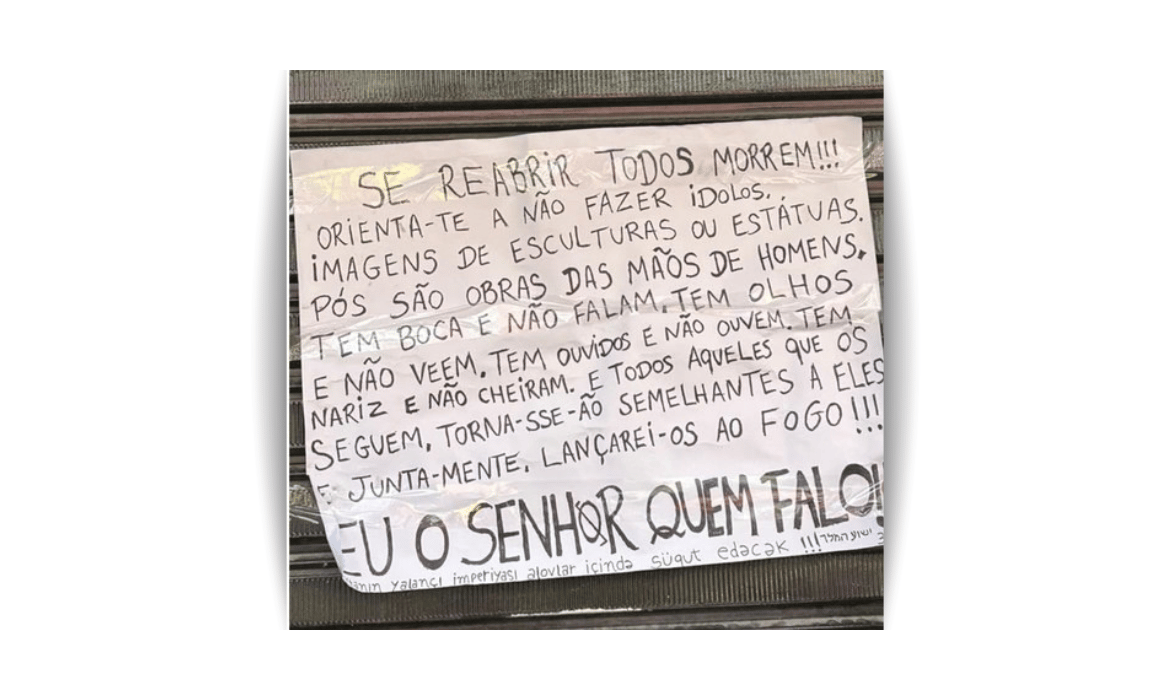 SE REABRIR TODOS MORREM!!!
ORIENTA-TE A NÃO FAZER iDOLOS.
iMAGENS DE ESCULTURAS OU ESTÁTUAS.
PÓS SÃO OBRAS DAS MÃOS DE HOMENS.
TEM BOCA E NÃO FALAM. TEM OLHOS
E NÃO VEEM. TEM OUViDOS E NÃO OUVEM. TEM
NARiZ E NÃO CHEiRAM. E TODOS AQUELES QUE OS
SEGUEM, TORNA-SSE-ÃO SEMELHANTES A ELES
E JUNTA-MENTE, LANÇAREi-OS AO FOGO!!!
EU O SENHOR QUEM FALO!!
yalançı imperiyası alovlar içində süqut edəcək !!!